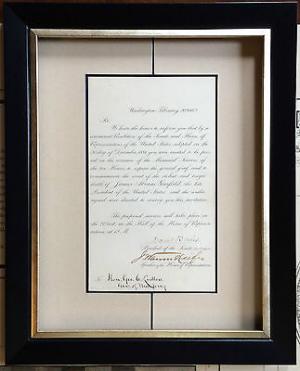 Washington, February
Sir:
We have the honor to inform you that by a
concurrent Resolution of the Senate and House of
Representatives of the United States adopted on the
of December, 1881 you were invited to be present
on the occasion of the Memorial Service of
the two Houses to express the general grief and to
commemorate the
death of James Abram Garfield, late
President of the United States, and the under-
signed were directed to convey you this invitation.
The proposed service will take place on
the in the Hall of the House of Represen-
tatives, at M.
David Davis
President of the Senate
J Warren Keifer
Speaker of the House of Representatives
To Hon. Geo.